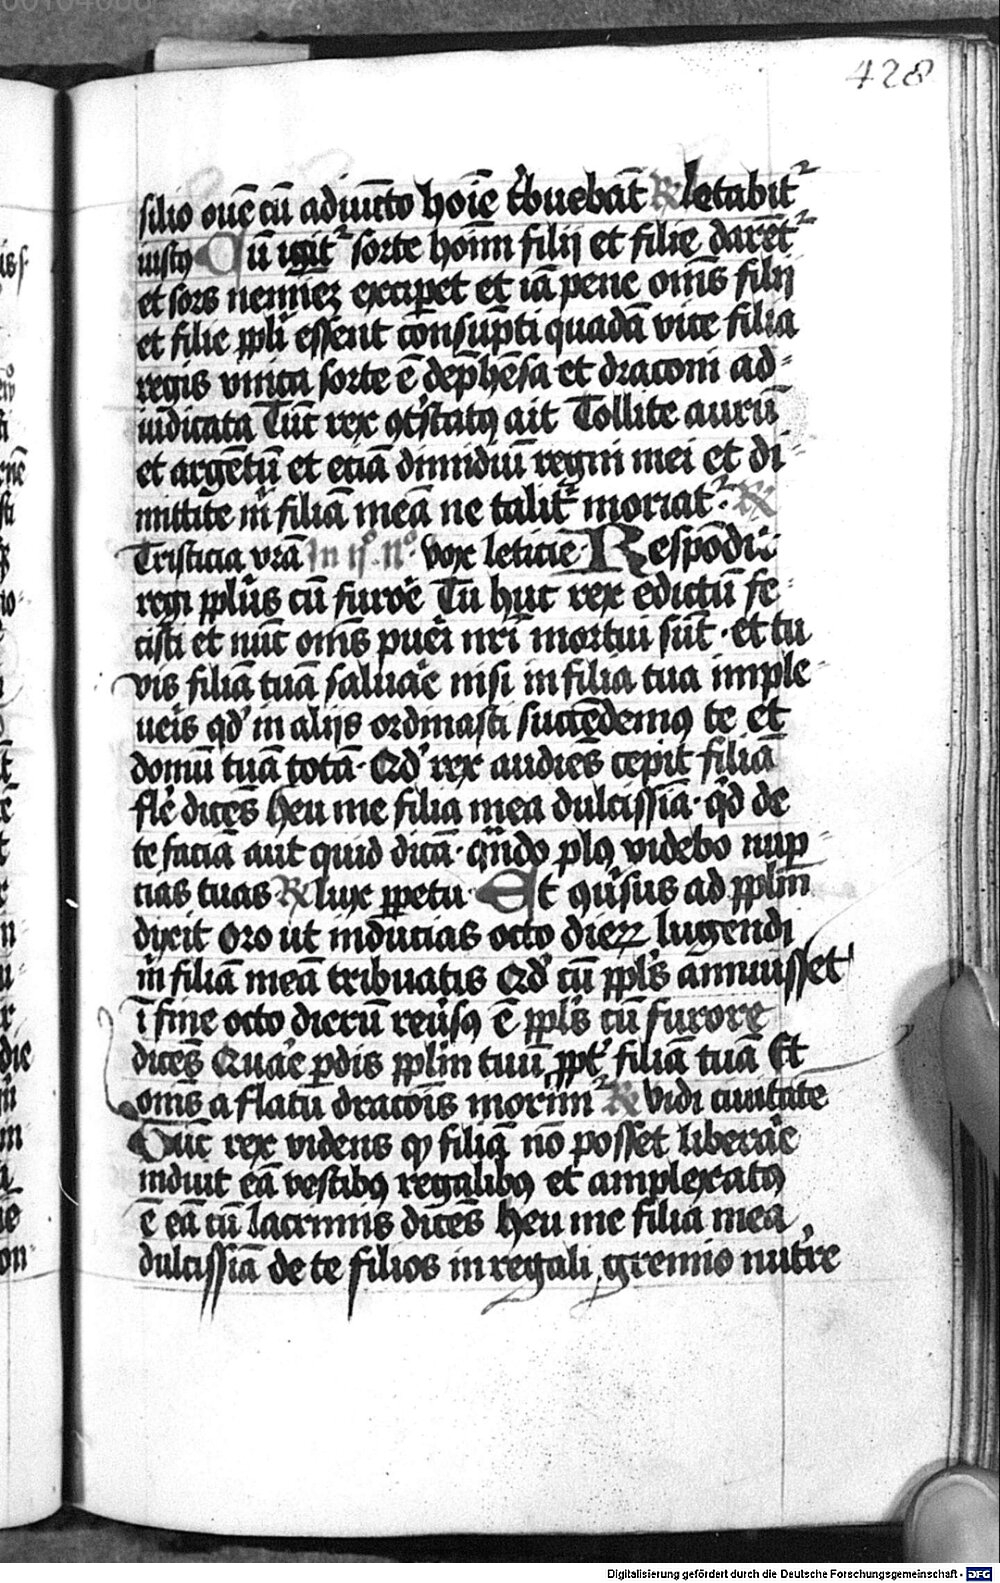 428
silio ouē cū adiūcto hoīe t͛buebāt ℟ letabit᷑
iustꝰ Cū igit᷑ sorte hoīm filij et filie darēt᷑
et sors neminē exciꝑet et iā pene om̄s filij
et filie ppl̄i essent consūpti quadā vice filia
regis vnica sorte ē dep̄hēsa et draconi ad-
iudicata Tūc rex ꝯt͛statꝰ ait Tollite aurū
et argētū et eciā dimidiū regni mei et di-
mittite m̄ filiā meā ne talit᷑ moriat᷑ ℟
Tristicia vr̄a In ijº. nº. vox leticie Respōdit
regi pplūs cū furoē Tu huc rex edictū fe-
cisti et nūc om̄s pueri nr̄i mortui sūt · et tu
vis filiā tuā saluaē nisi in filia tua imple-
ueīs qd̓ in alijs ordinasti succēdemꝰ te et
domū tuā totā · Qd̓ rex audiēs cepit filiā
fle͛ dicēs heu me filia mea dulcissīa · qd̓ de
te faciā aut quid dicā · qn̄do plꝰ videbo nup-
cias tuas ℟ lux ꝑpetu · Et ꝯu͛sus ad ppl̄m
dixit Oro ut inducias octo dieꝝ lugendi
m̄ filiā meā tribuatis Qd̓ cū ppl̄s annuisset
ī fine octo dierū reu͛sꝰ ē ppl̄s cū furore
dicēs Quaē ꝑdis ppl̄m tuū ꝓpt͛ filiā tuā Et
om̄s a flatū dracōis morim᷑ ℟ vidi ciuitate
Tūc rex videns ꝙ filiā nō posset liberaē
induit eā vestibꝰ regalibꝰ et amplexatꝰ
ē eā cū lacrimis dicēs heu me filia mea
dulcissīa de te filios in regali gremio nut͛re
Digitalisierung gefördert durch die Deutsche Forschungsgemeinschaft - DFG